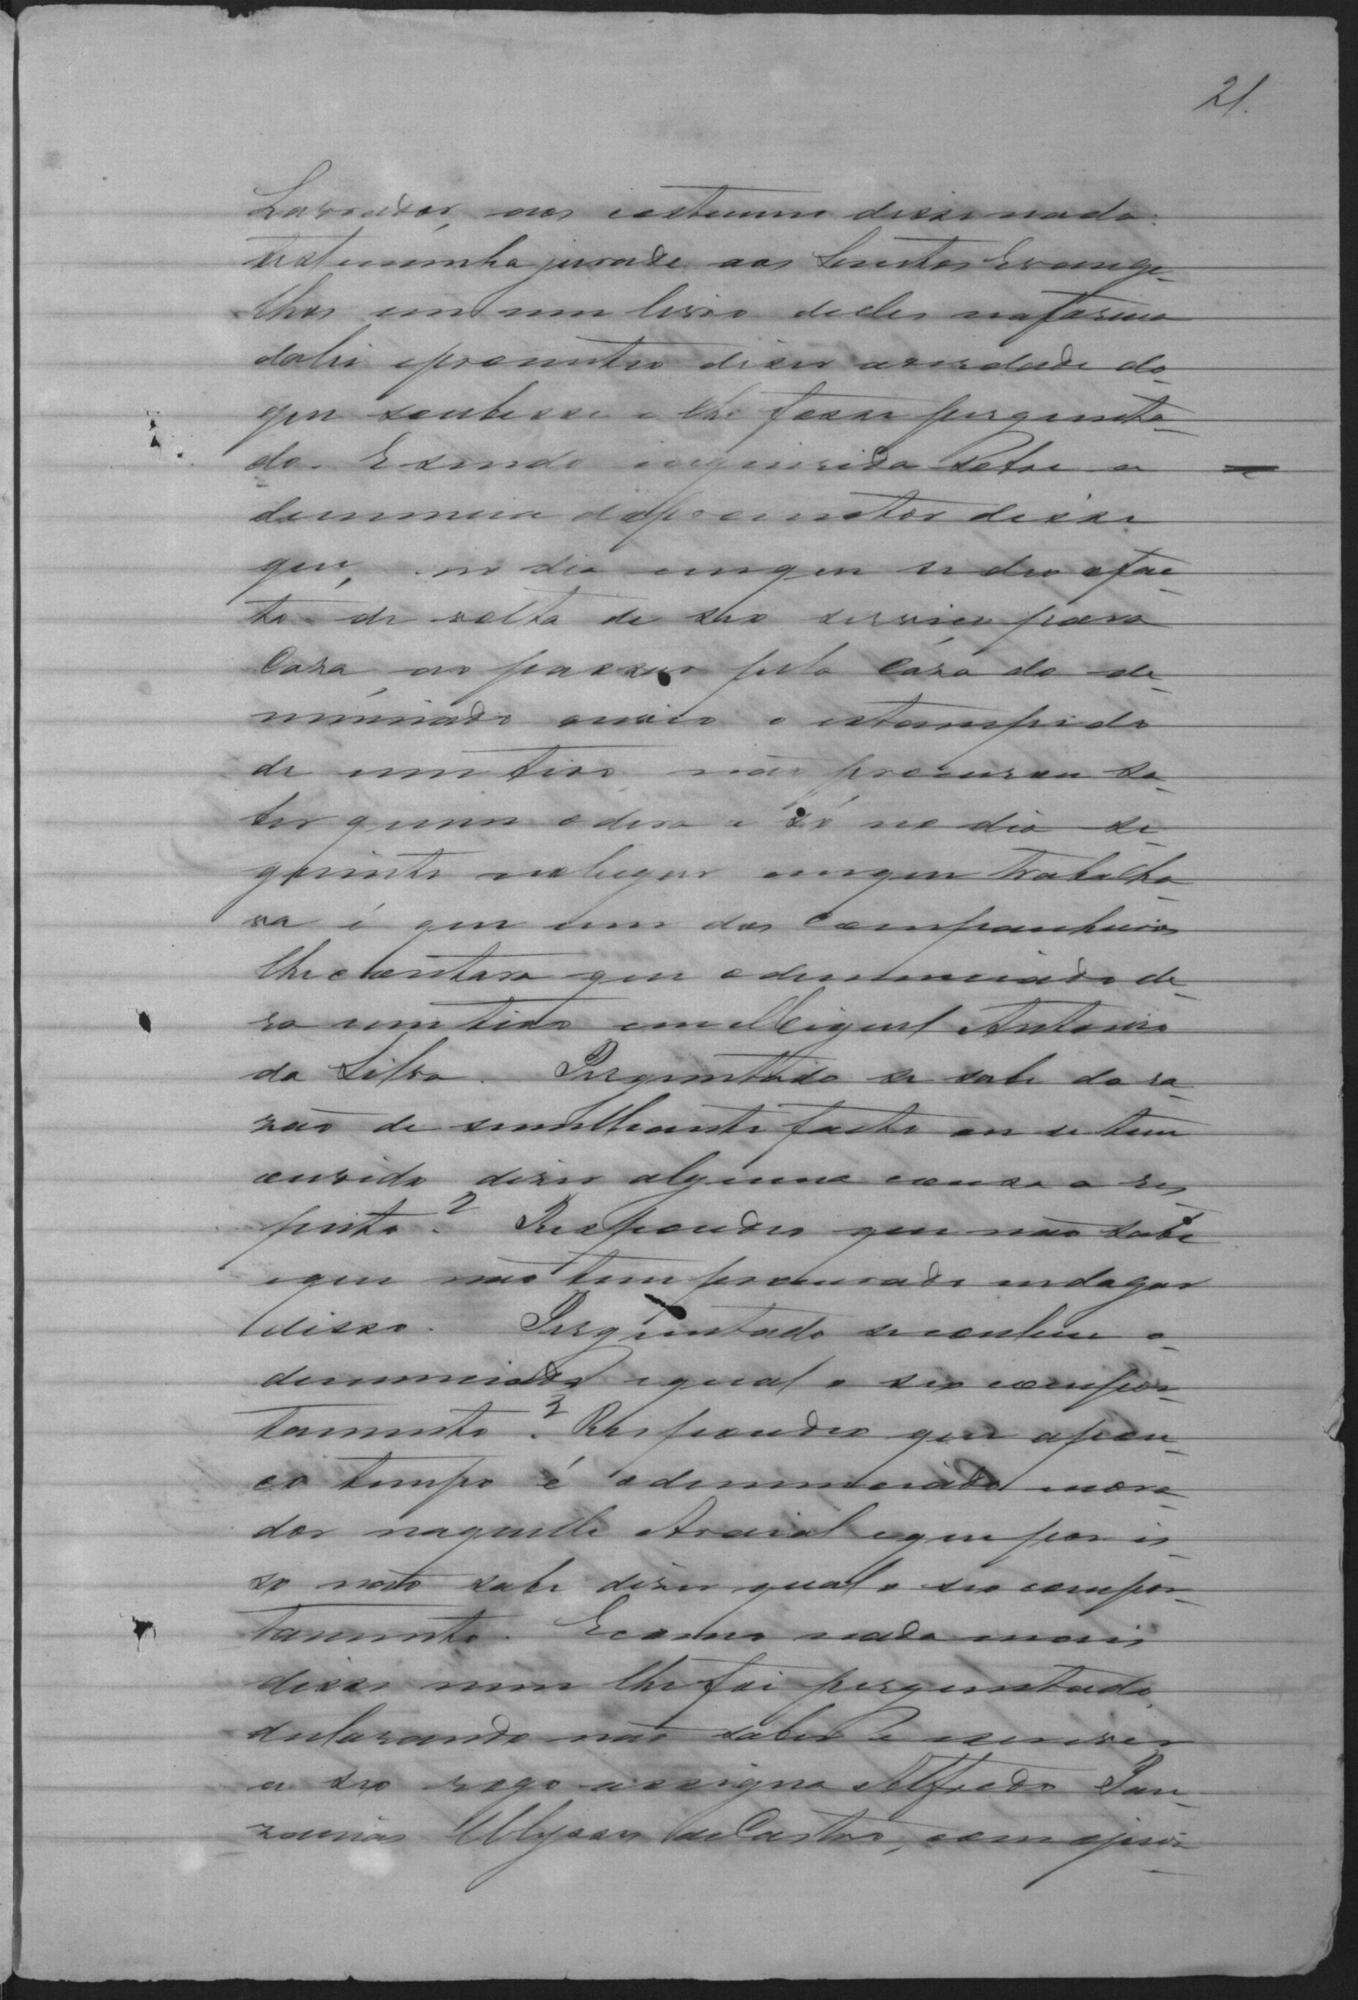 21.
Lavrador, aos costumes disse nada.
testeminha jurada aos Santos Evange-
lhos em um livro delles na forma
da lei e prometteo diser a verdade do
que soubesse e lhe fosse pergunta-
do. E sendo inquirida sobre a
denuncia do promotor disse
que, no dia em que se deo o fac-
to de volta de seo serviço para
Casa, ao passar pela Casa do de-
nunciado ouvio o estampido
de um tiro não procurou sa-
ber quem o dera e só no dia se-
guinte no lugar em que trabalha-
va é que um dos companheiros
lhe contara que o denunciado de-
ra um tiro em Miguel Antonio
da Silva. Perguntado se sabe da ra-
zão de semelhante facto ou se tem
ouvido diser alguma cousa a res-
peito? Respondeo que não sabe
e que não tem procurado indagar
disso. Perguntado se conhece o
denunciado e qual o seo compor-
tamento? Respondeo que a pou-
co tempo é o denunciado mora-
dor naquelle Arraial e que por is-
so não sabe diser qual o seo compor-
tamento. E como nada mais
disse nem lhe foi perguntado,
declarando não saber escrever
a seo rogo assigna Alfredo
Ulysses de Castro, com o juis